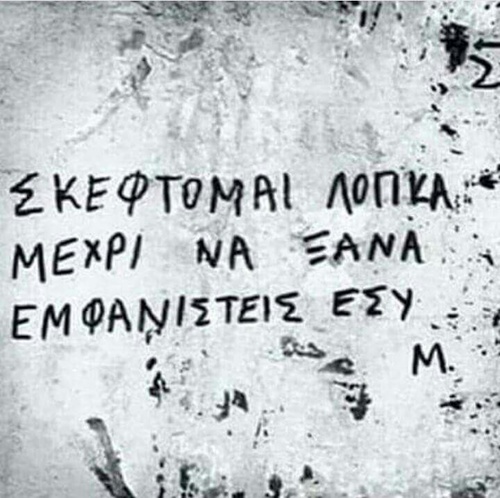 Σ
ΣΚΕΦΤΟΜΑΙ ΛΟΓΙΚΑ
ΜΕΧΡΙ ΝΑ ΞΑΝΑ
ΕΜΦΑΝΙΣΤΕΙΣ ΕΣΥ
Μ.